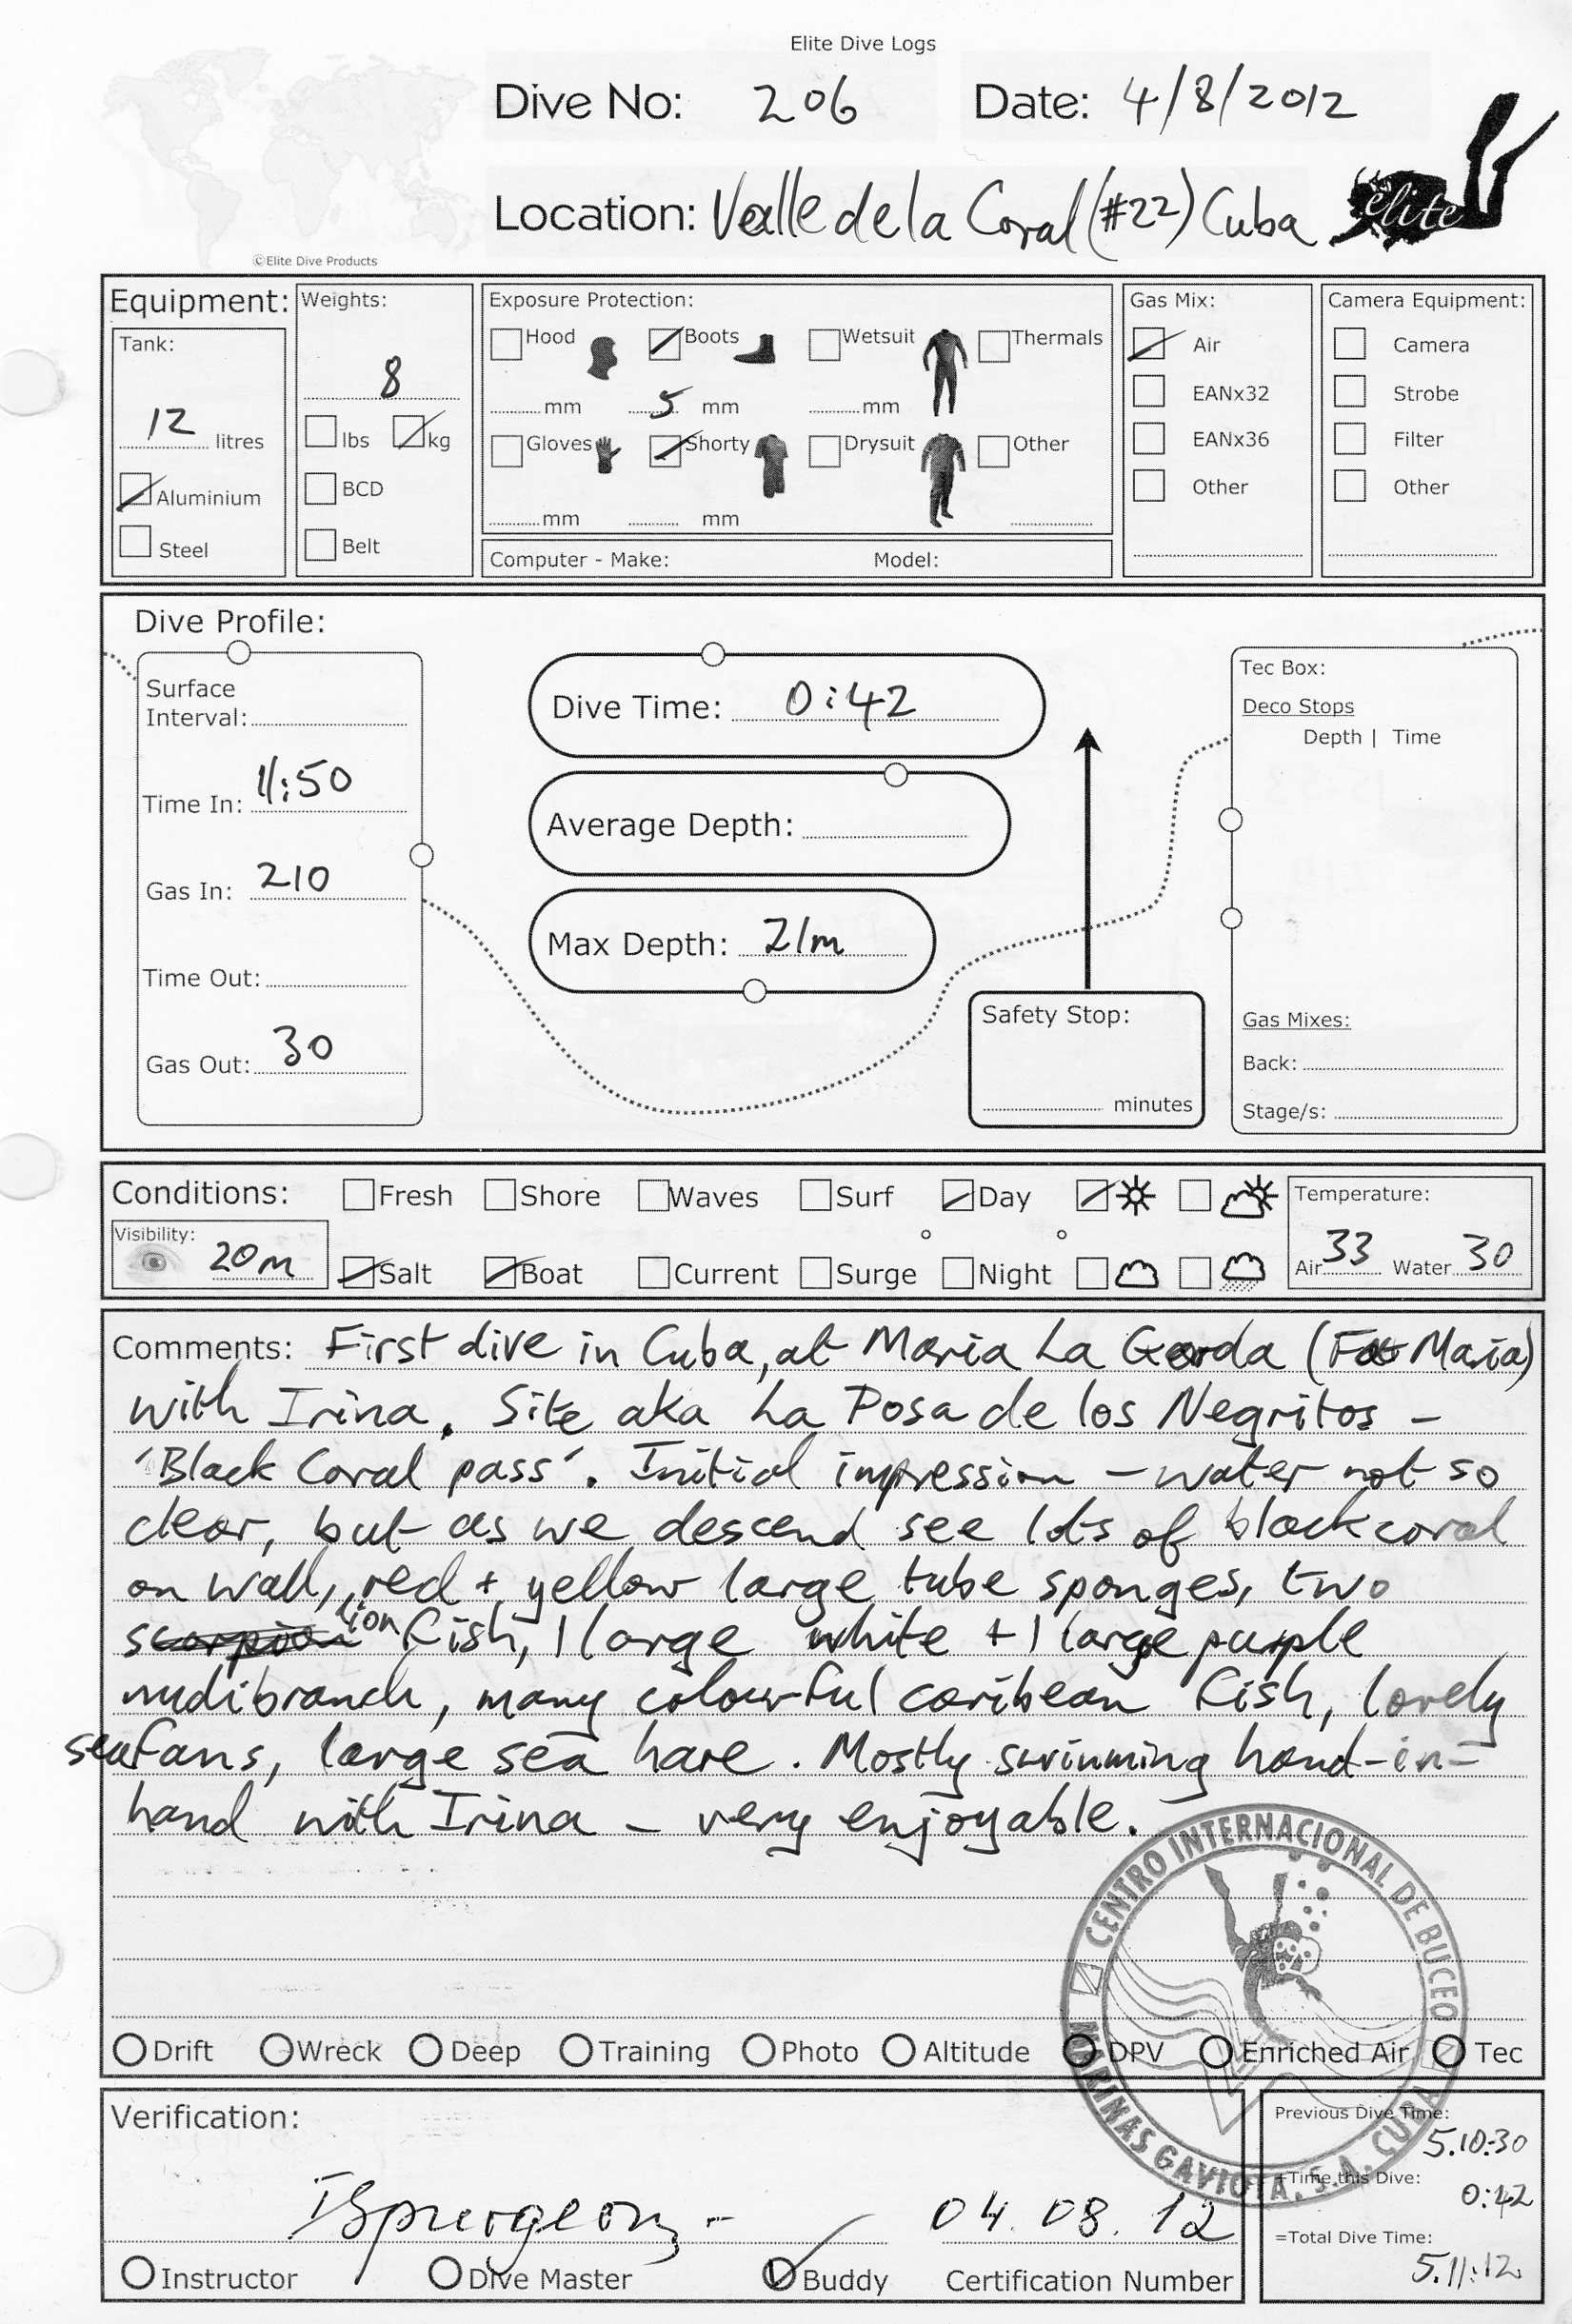 Elite Dive Logs
Dive No: 206 Date: 4/8/2012
Location: Valle de la Coral (#22) Cuba
elite
©Elite Dive Products
Equipment: Weights: Exposure Protection: Gas Mix: Camera Equipment:
Tank: Hood Boots Wetsuit Thermals Air Camera
8
mm 5 mm mm EANx32 Strobe
12 litres lbs kg Gloves Shorty Drysuit Other EANx36 Filter
Aluminium BCD Other Other
mm mm
Steel Belt Computer - Make: Model:
Dive Profile:
Surface
Interval:
Time In: 11:50
Gas In: 210
Time Out:
Gas Out: 30
Dive Time: 0:42
Average Depth:
Max Depth: 21m
Safety Stop:
minutes
Tec Box:
Deco Stops
Depth | Time
Gas Mixes:
Back:
Stage/s:
Conditions: Fresh Shore Waves Surf Day Temperature:
Visibility: 20m Salt Boat Current Surge Night Air 33 Water 30
Comments: First dive in Cuba, at Maria La Gorda (Fat Maria)
with Irina. Site aka La Posa de los Negritos -
'Black Coral pass'. Initial impression - water not so
clear, but as we descend see lots of black coral
on wall, red + yellow large tube sponges, two
scorpion lion fish, 1 large white + 1 large purple
nudibranch, many colourful caribean fish, lovely
seafans, large sea hare. Mostly swimming hand-in-
hand with Irina - very enjoyable.
CENTRO INTERNACIONAL DE BUCEO
MARINAS GAVIOTA, S.A. CUBA
Drift Wreck Deep Training Photo Altitude DPV Enriched Air Tec
Verification:
ISpurgeon 04.08.12
Instructor Dive Master Buddy Certification Number
Previous Dive Time:
5.10:30
+Time this Dive:
0:42
=Total Dive Time:
5.11:12